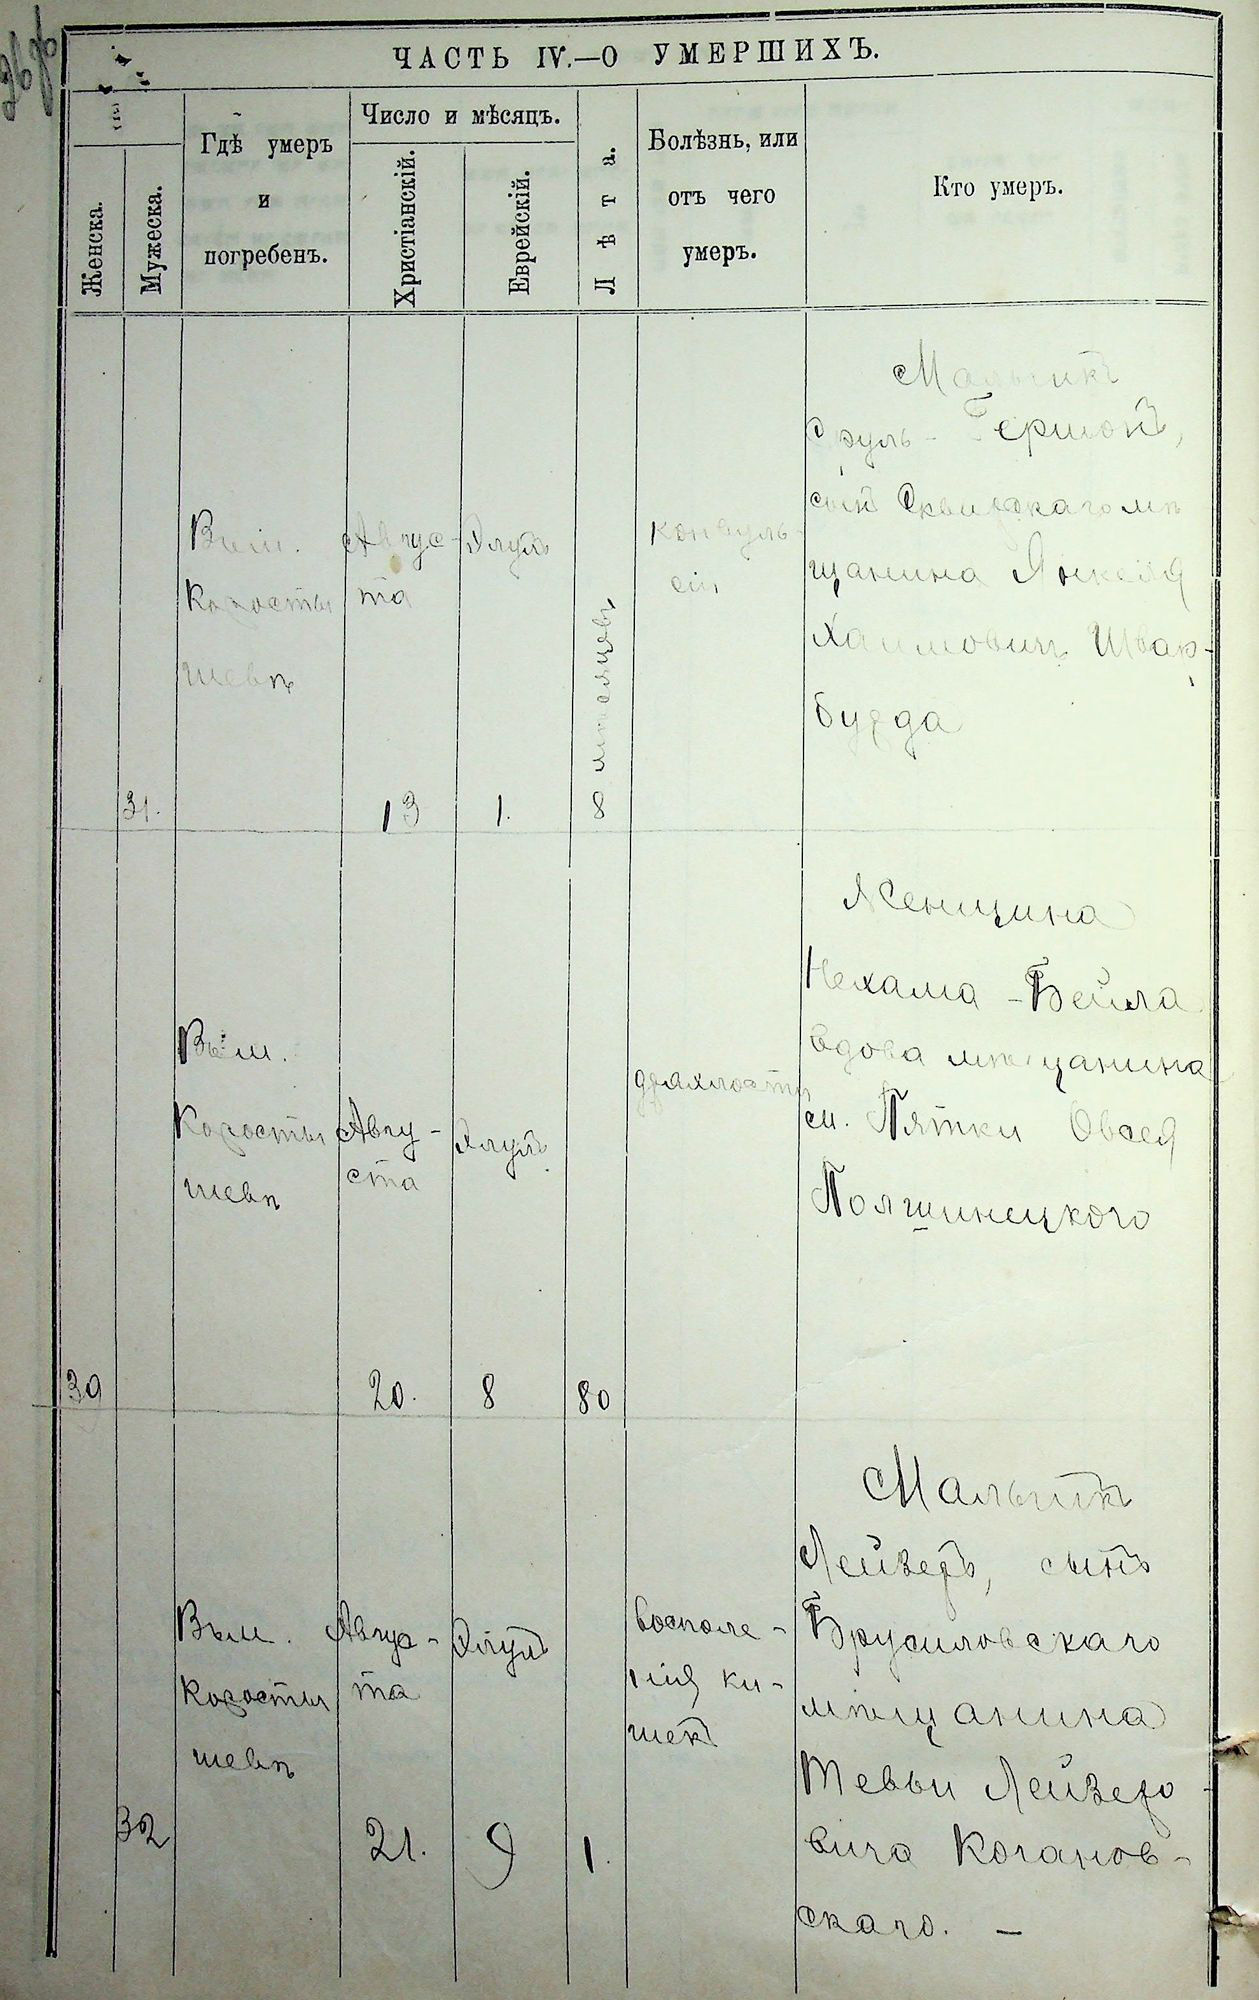 ЧАСТЬ IV.—О УМЕРШИХЪ.
Женска.
Мужеска.
Гдѣ умеръ
и
погребенъ.
Число и мѣсяцъ.
Христіанскій.
Еврейскій.
Лѣта.
Болѣзнь, или
отъ чего
умеръ.
Кто умеръ.
31.
Въ м.
Коросты
шевѣ
Авгус-
та
13
Элулъ
1.
8 мѣсяцовъ
конвуль-
сіи
Мальчикъ
Сруль-Гершонъ,
сынъ Сквирскаго мѣ
щанина Янкеля
Хаимовича Швар-
бурда
39
Въ м.
Коросты
шевѣ
Авгу-
ста
20.
Элулъ
8
80
дряхлости
Женщина
Нехама-Бейла
вдова мѣщанина
м. Пятки Овсея
32
Въ м.
Коросты
шевѣ
Авгус-
та
21.
Элулъ
9
1.
восполе-
нія ки-
шекъ
Мальчикъ
Лейзеръ, сынъ
Брусиловскаго
мѣщанина
Тевьи Лейзеро-
вича Коганов-
скаго. —